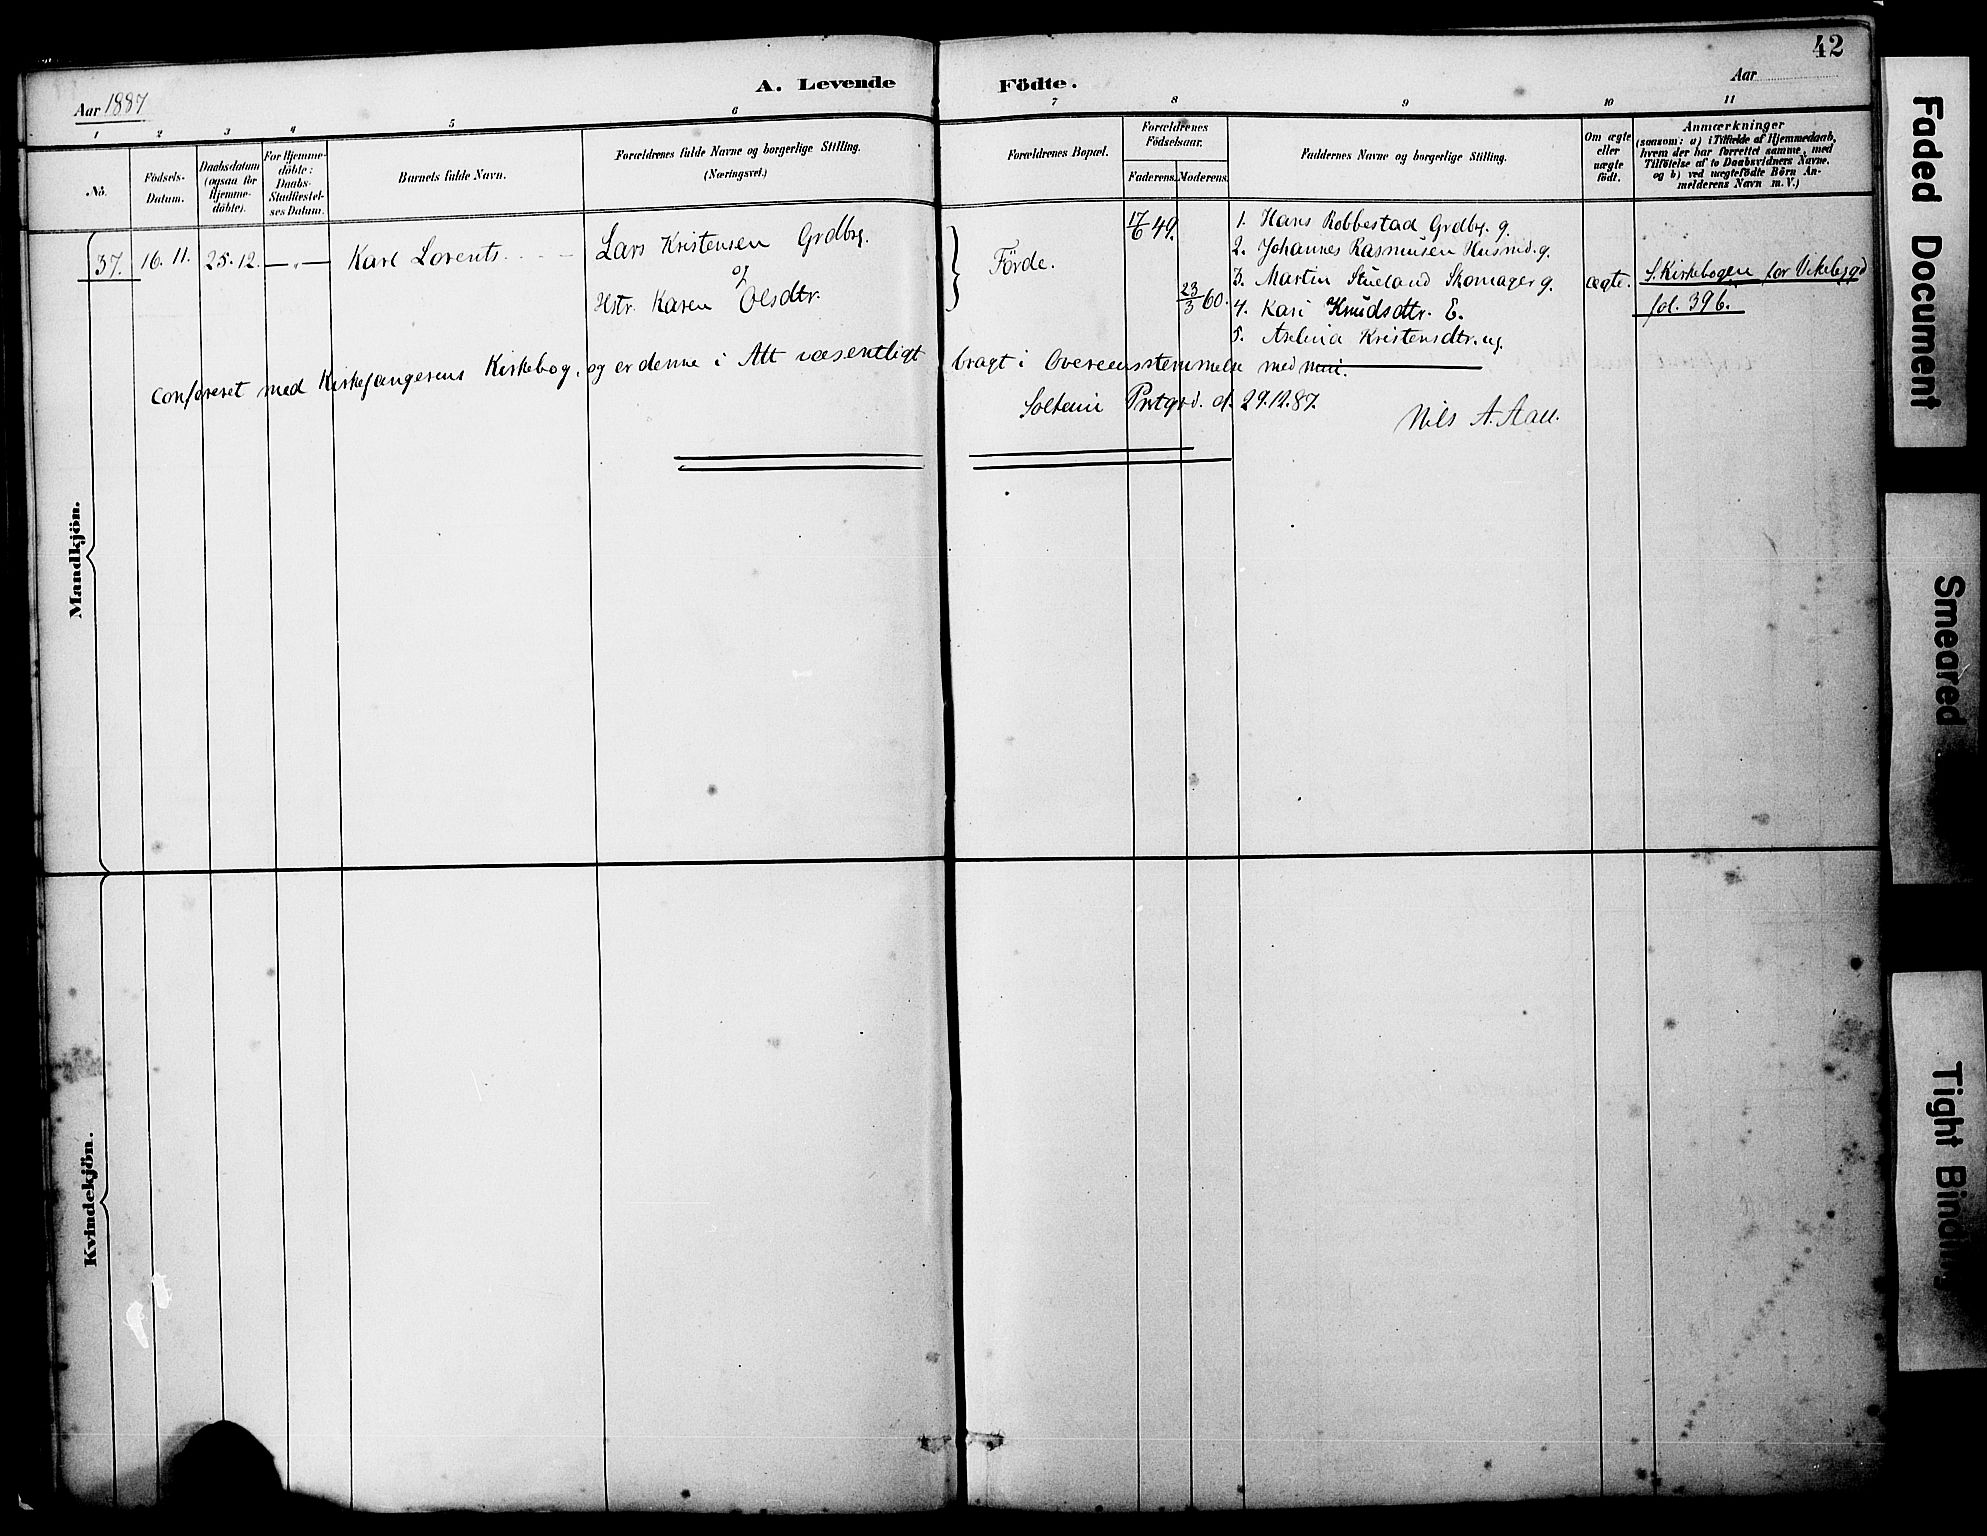 42
A. Levende Födte.
Aar 1887
Aar
1 2 3 4 5 6 7 8 9 10 11
No.
Födsels-
Datum.
Daabsdatum
(ogsaa for
Hjemme-
döbte).
For Hjemme-
döbte:
Daabs-
Stadfæstel-
ses Datum.
Barnets fulde Navn.
Forældrenes fulde Navne og borgerlige Stilling.
(Næringsvei.)
Forældrenes Bopæl.
Forældrenes
Födselsaar.
Faderens. Moderens.
Faddernes Navne og borgerlige Stilling.
Om ægte
eller
uægte
födt.
Anmærkninger
(saasom: a) i Tilfælde af Hjemmedaab,
hvem der har forrettet samme, med
Tilföielse af to Daabsvidners Navne,
og b) ved uægtefödte Börn An-
melderens Navn m. V.)
Mandkjön.
37. 16. 11. 25. 12. — „ — Karl Lorents
Lars Kristensen Grdbrg.
og
Hstr. Karen Olsdtr.
Förde.
17/6 49.
23/3 60.
1. Hans Robbestad Grdbr. g.
2. Johannes Rasmusen Husmd. g.
3. Martin Stueland Skomager g.
4. Kari Knudsdtr. E.
5. Kristensdtr. ug.
ægte.
S. Kirkebogen for Vikebygd
fol. 39 6.
Confereret med Kirkesangerens Kirkebog, og er denne i Alt væsentligt bragt i Overensstemmelse med min.
Prstgrd. d. 29.12.87.
Nils A. Aall.
Kvindekjön.
Faded Document
Smeared
Tight Binding